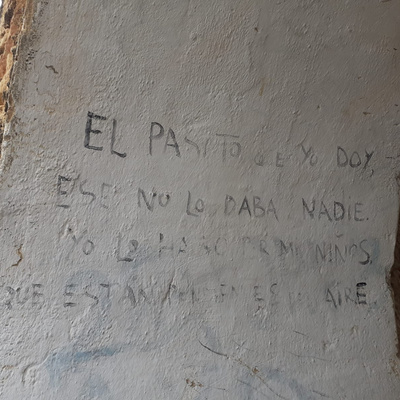 EL PASITO QUE YO DOY,
ESE NO LO DABA NADIE.
YO LO HAGO POR MIS NIÑOS
QUE ESTAN AIRE.